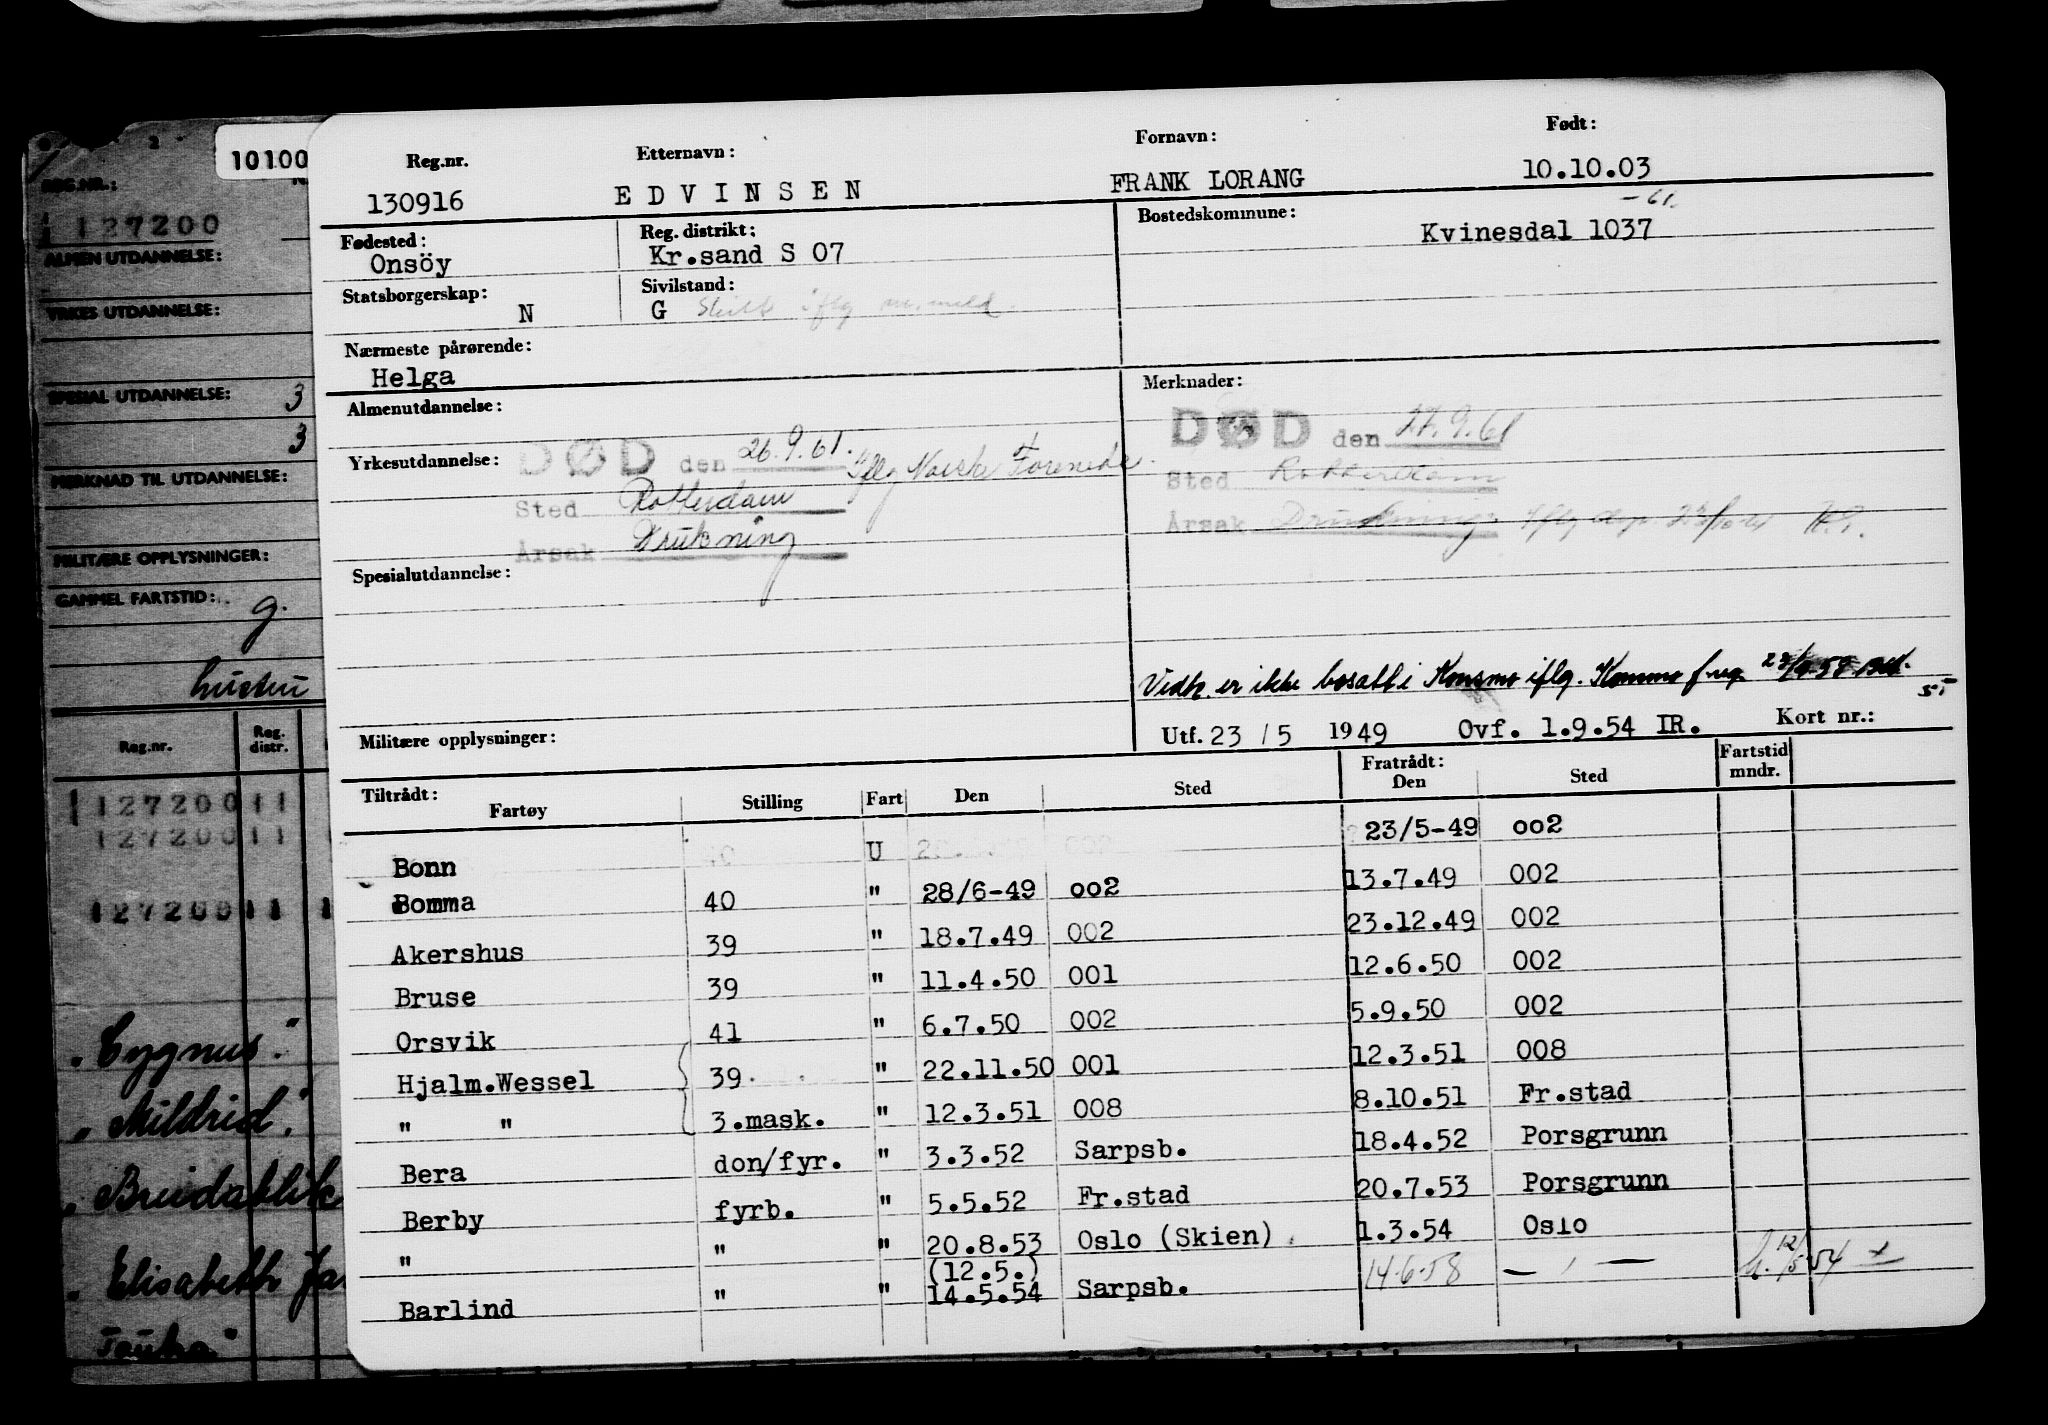 Reg.nr. Etternavn: Fornavn: Født:
130916 EDVINSEN FRANK LORANG 10.10.03
-61.
Fødested: Onsöy
Reg. distrikt: Kr.sand S 07
Bostedskommune: Kvinesdal 1037
Statsborgerskap: N
Sivilstand: G Skilt iflg m.meld.
Nærmeste pårørende:
Helga
Almenutdannelse:
Merknader:
Yrkesutdannelse:
DØD den 26.9.61. Iflg Norske Forenede.
Sted Rotterdam
Årsak Drukning
DØD den 27.9.61
Sted Rotterdam
Årsak Drukning Iflg
Spesialutdannelse:
Vedk. er ikke bosatt i Konsmo iflg.
Militære opplysninger:
Utf. 23 / 5 1949 Ovf. 1.9.54 IR. Kort nr.:
Tiltrådt: Fratrådt: Fartstid
Fartøy Stilling Fart Den Sted Den Sted mndr.
Bonn U 23/5-49 oo2
Bomma 40 " 28/6-49 oo2 13.7.49 002
Akershus 39 " 18.7.49 002 23.12.49 002
Bruse 39 " 11.4.50 001 12.6.50 002
Orsvik 41 " 6.7.50 002 5.9.50 002
Hjalm.Wessel 39 " 22.11.50 001 12.3.51 008
" " 3.mask. " 12.3.51 008 8.10.51 Fr.stad
Bera don/fyr. " 3.3.52 Sarpsb. 18.4.52 Porsgrunn
Berby fyrb. " 5.5.52 Fr.stad 20.7.53 Porsgrunn
" " " 20.8.53 Oslo (Skien) 1.3.54 Oslo
(12.5.)
Barlind " " 14.5.54 Sarpsb. 14.6.58 — —
10100
REG.NR.:
127200
ALMEN UTDANNELSE:
YRKES UTDANNELSE:
SPESIAL UTDANNELSE: 3
3
MERKNAD TIL UTDANNELSE:
MILITÆRE OPPLYSNINGER:
GAMMEL FARTSTID: g.
hustru
Reg.nr. Reg. distr.
127200 11
127200 11
127200 11
"Cygnus"
"Mildrid"
"Breidablik
"Elisabeth